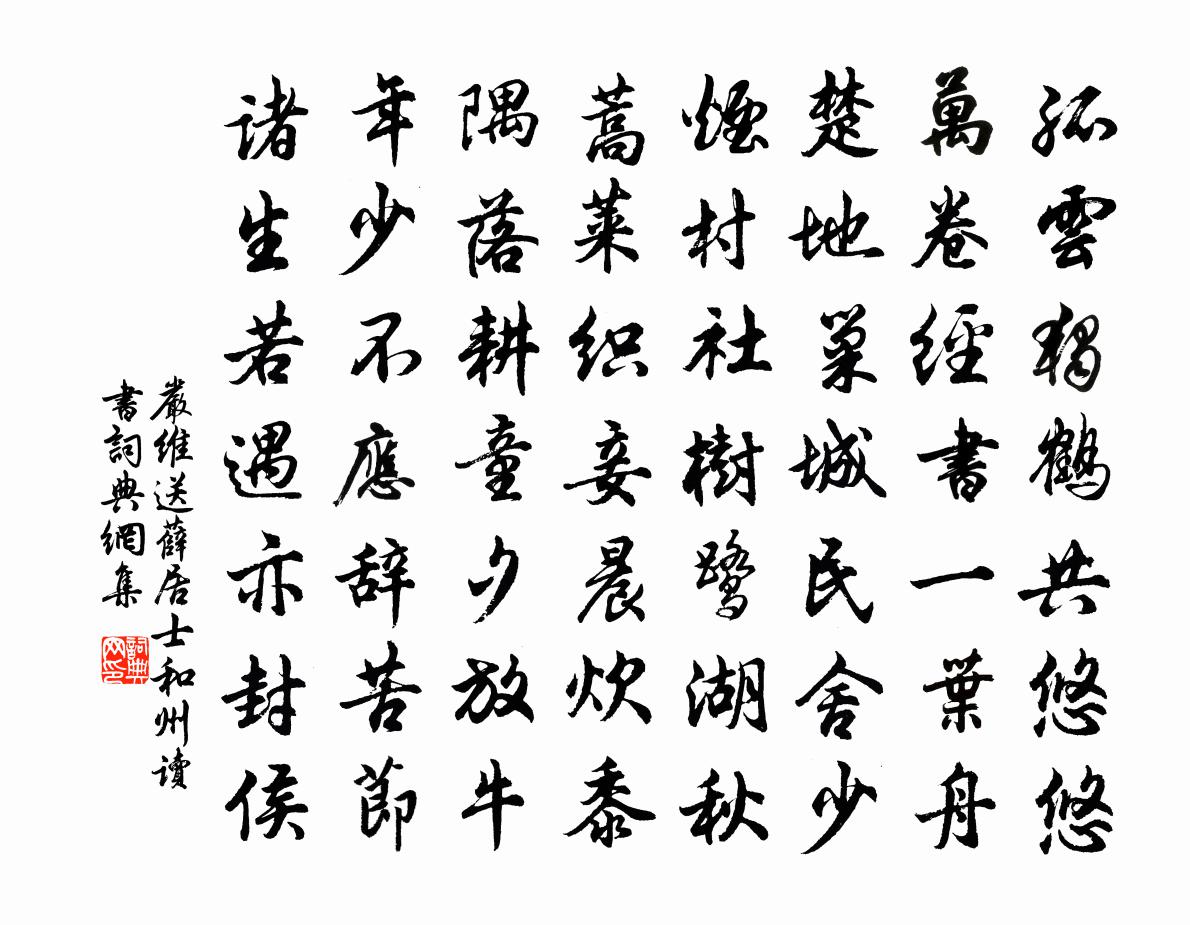 孤雲獨鶴共悠悠
萬卷經書一葉舟
楚地巢城民舍少
煙村社樹鷺湖秋
蒿萊织妾晨炊黍
隅落耕童夕放牛
年少不應辞苦節
诸生若遇亦封侯
嚴維送薛居士和州讀
書詞典網集
詞典网印